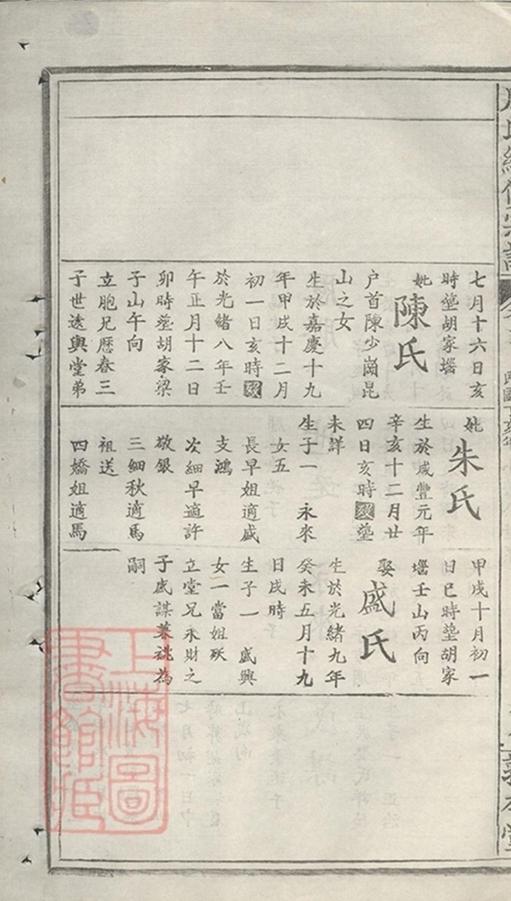 七月十六日亥
時塟胡家壋
妣陳氏
户首陳少崗昆
山之女
生於嘉慶十九
年甲戌十二月
初一日亥時歿
於光緒八年壬
午正月十二日
卯時塟胡家梁
子山午向
立胞兄歷春三
子世逵與堂弟
妣朱氏
生於咸豐元年
辛亥十二月廿
四日亥時歿塟
未詳
生子一 永來
女五
長早姐適戚
支鴻
次細早適許
敬銀
三細秋適馬
祖送
四嬌姐適馬
甲戌十月初一
日巳時塟胡家
壋壬山丙向
娶盛氏
生於光緒九年
癸未五月十九
日戌時
生子一 盛興
女一當姐殀
立堂兄永財之
子盛謀兼祧為
嗣
上海圖
書館藏